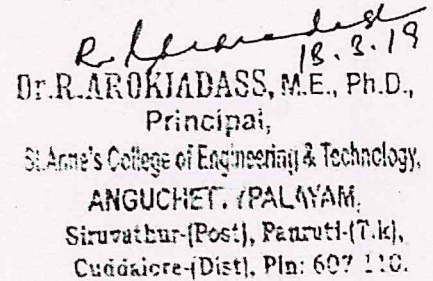 R. 
18.3.19
Dr.R.AROKIADASS, M.E., Ph.D.,
Principal,
St.Anne's College of Engineering & Technology,
ANGUCHET. YPALAYAM,
Siruvathur-(Post), Panruti-(T.k),
Cuddalore-(Dist), Pin: 607 110.